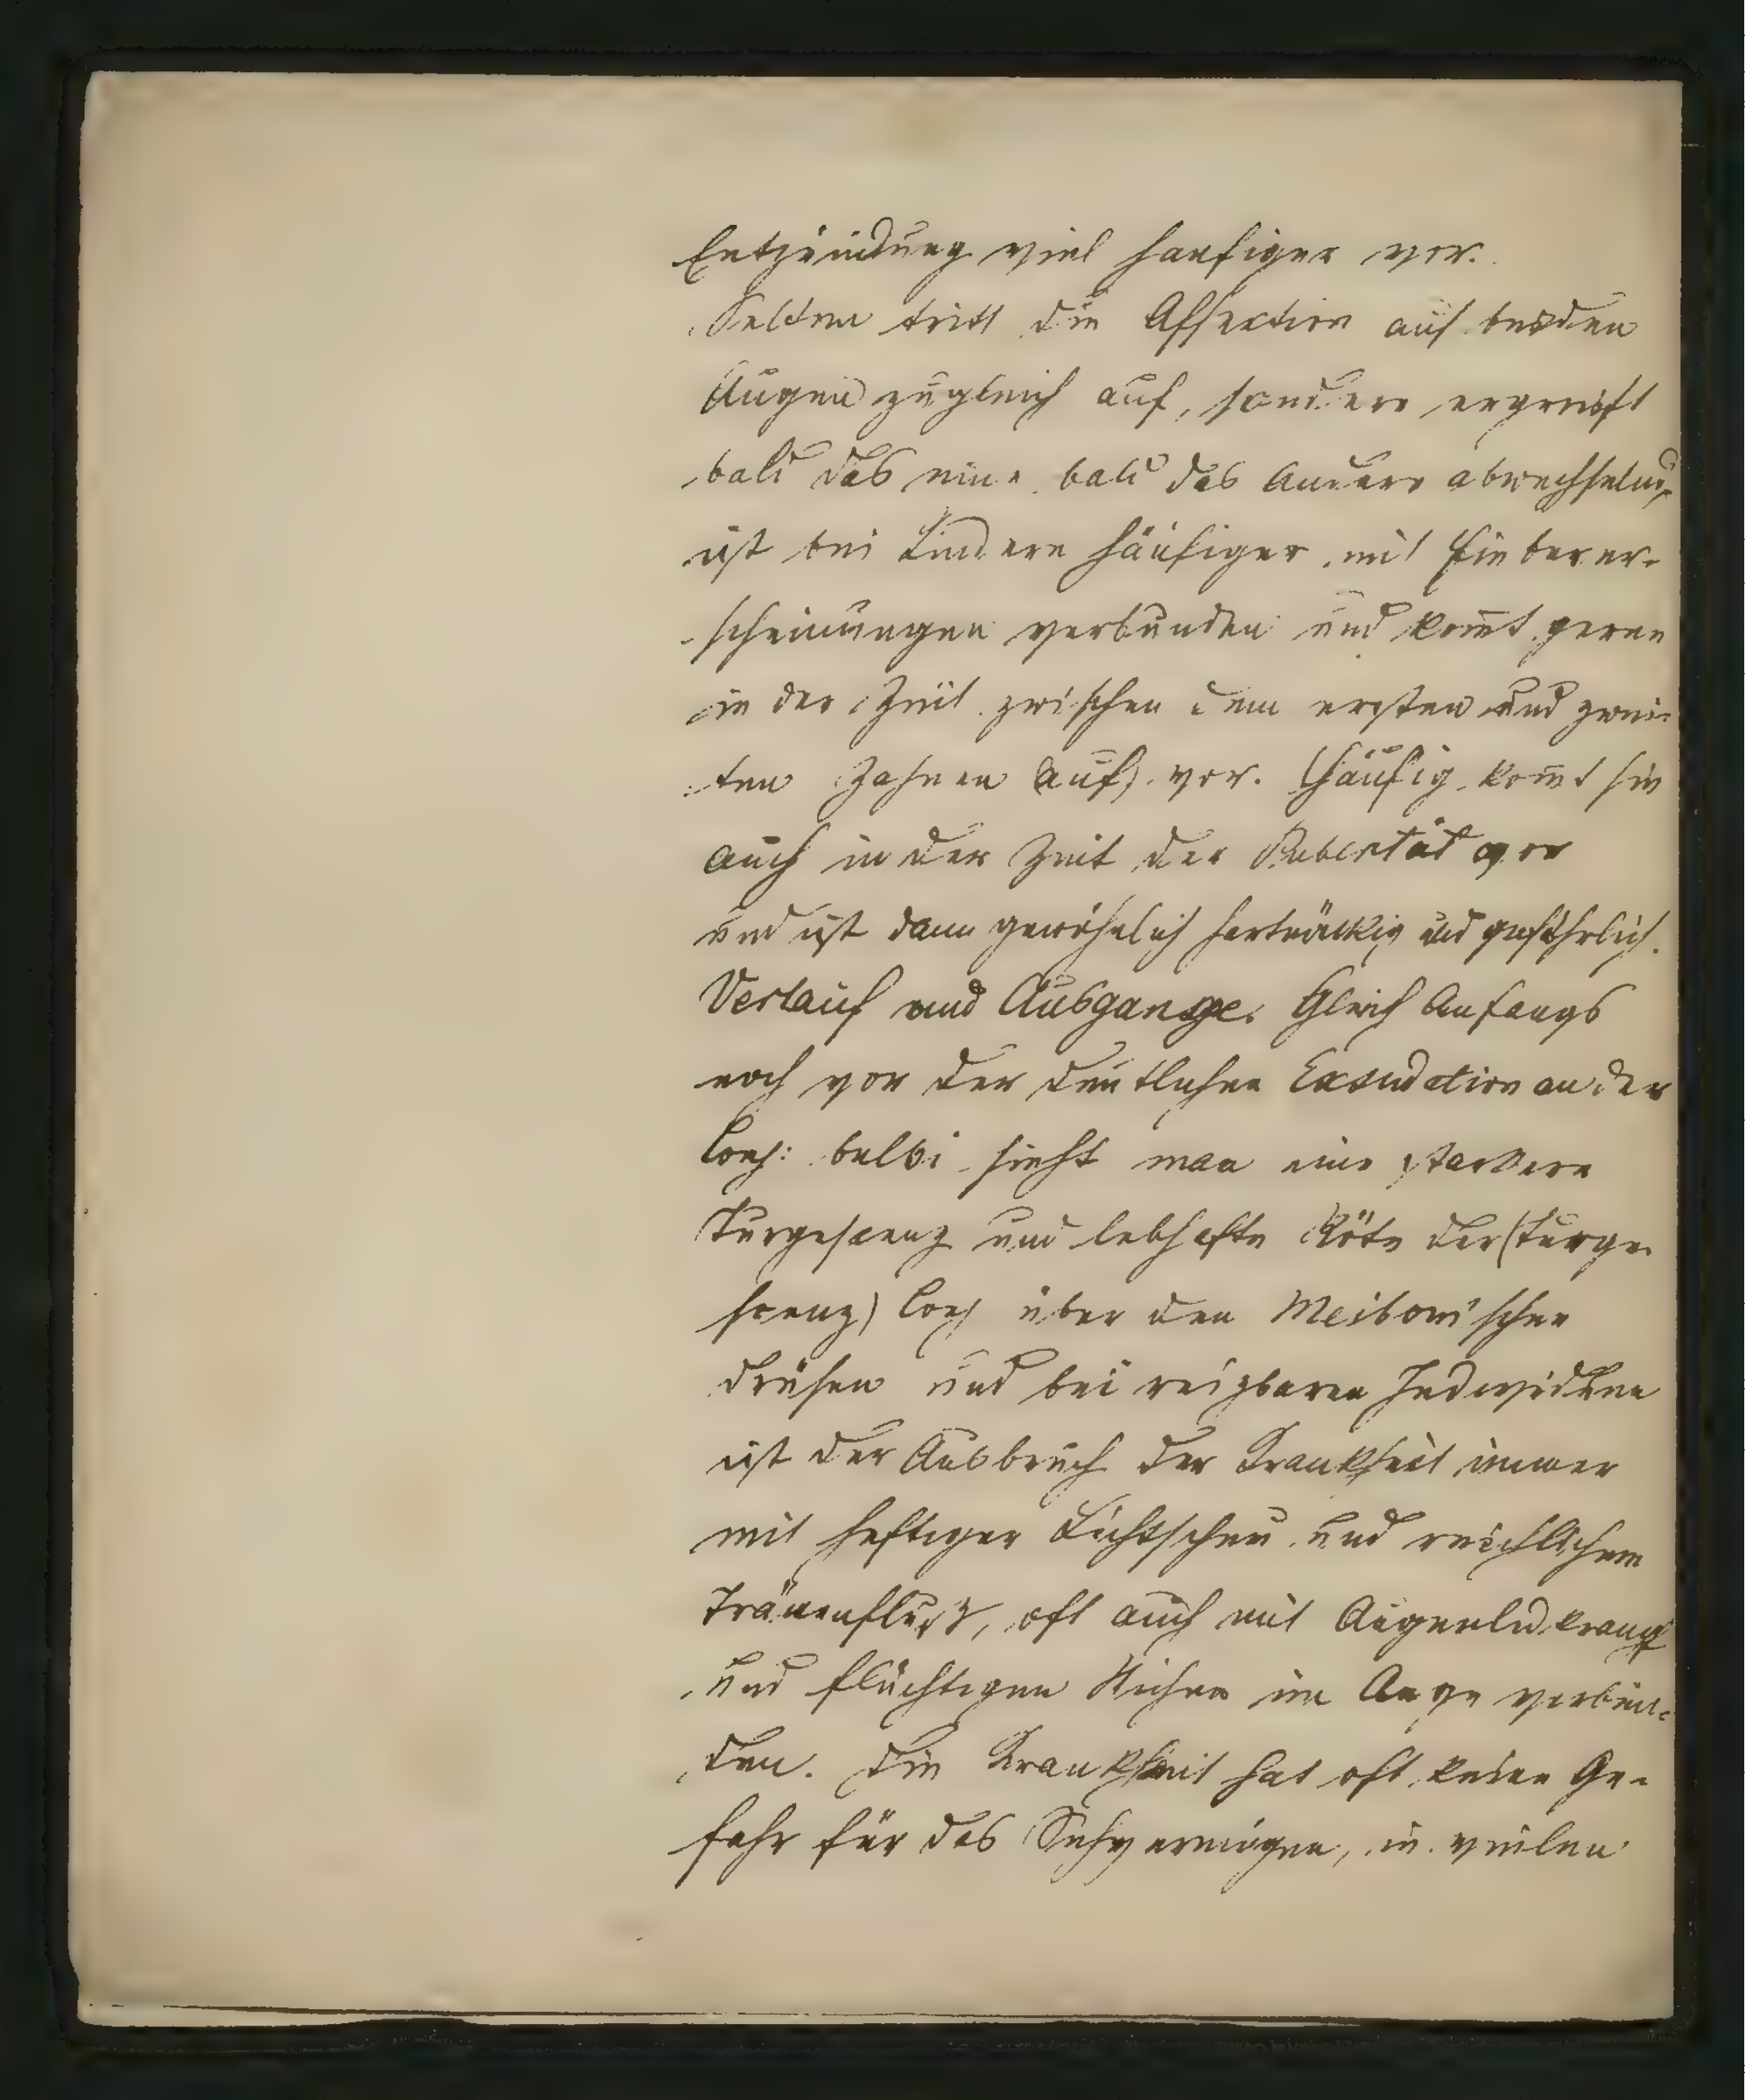 Entzündung viel haufiger vor.
Selten tritt die Affection auf beiden
Augen zugleich auf, sondern ergreift
bald das eine bald das andere abwechselnd,
ist bei Kindern häufiger mit Fieberer-
scheinungen verbunden und kom̅t gerne
in der Zeit zwischen dem ersten und zwei-
ten Zahnen auf) vor. Häufig kom̅t sie
auch in der Zeit der Pubertät vor
und ist dann gewöhnlich hartnäckig und gefährlich.
Verlauf und Ausgange. Gleich Anfangs
noch vor der deutlichen Exsudation an der
Conj: bulbi sieht man eine starkere
Turgescenz und lebhafte Röte der (Turge-
scenz) Conj über den Meibom'schen
Drüsen und bei reizbaren Individuen
ist der Ausbruch der Krankheit immer
mit heftiger Lichtscheu und reichlichem
Tränenfluß, oft auch mit Augenlidkrampf
und flüchtigen Stichen im Auge verbun-
den. Die Krankheit hat oft keine Ge-
fahr für das Sehvermögen, in vielen